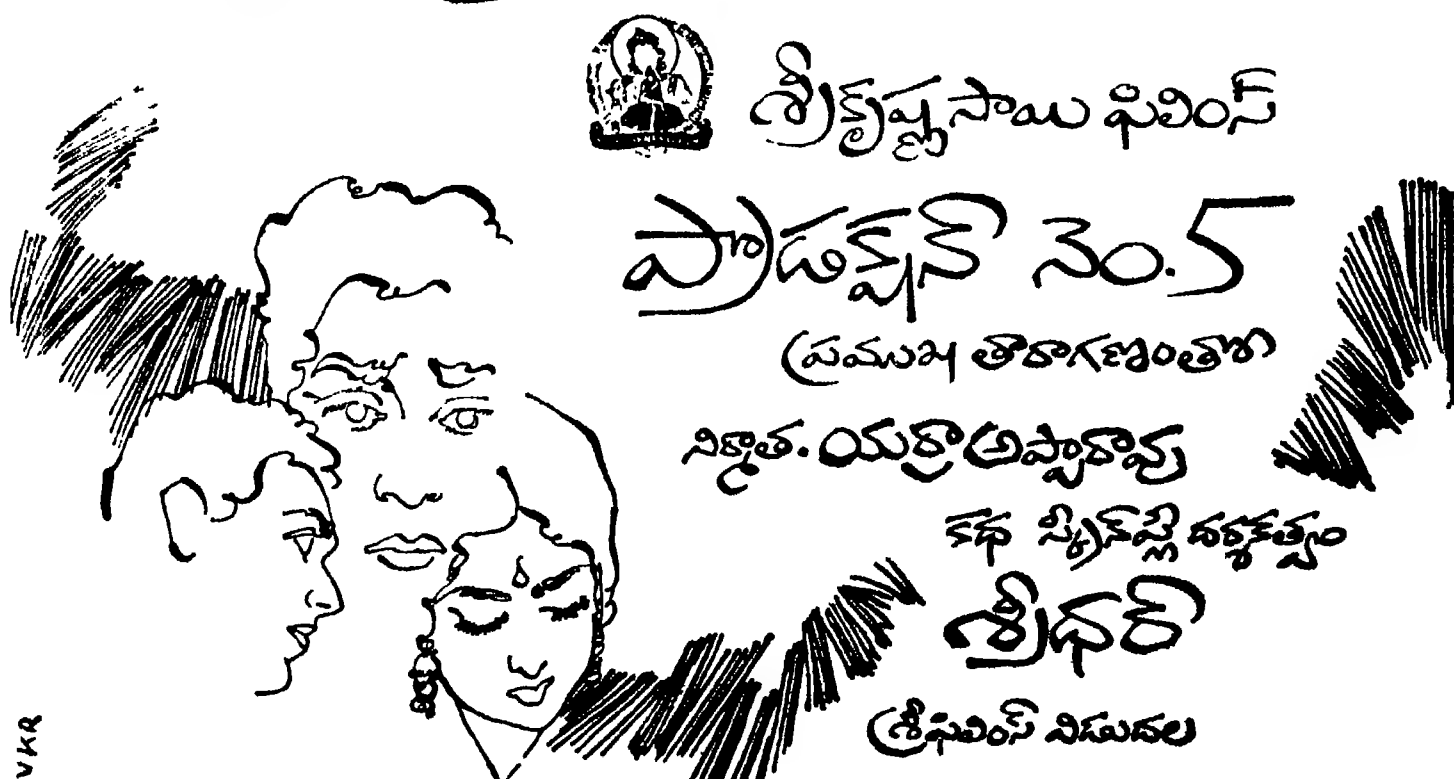 శ్రీకృష్ణసాయి ఫిలింస్
ప్రొడక్షన్ నెం. 5
ప్రముఖ తారాగణంతో
నిర్మాత. యర్రా అప్పారావు
కథ స్క్రీన్‌ప్లే దర్శకత్వం
శ్రీధర్
శ్రీఫిలింస్ విడుదల
VKR